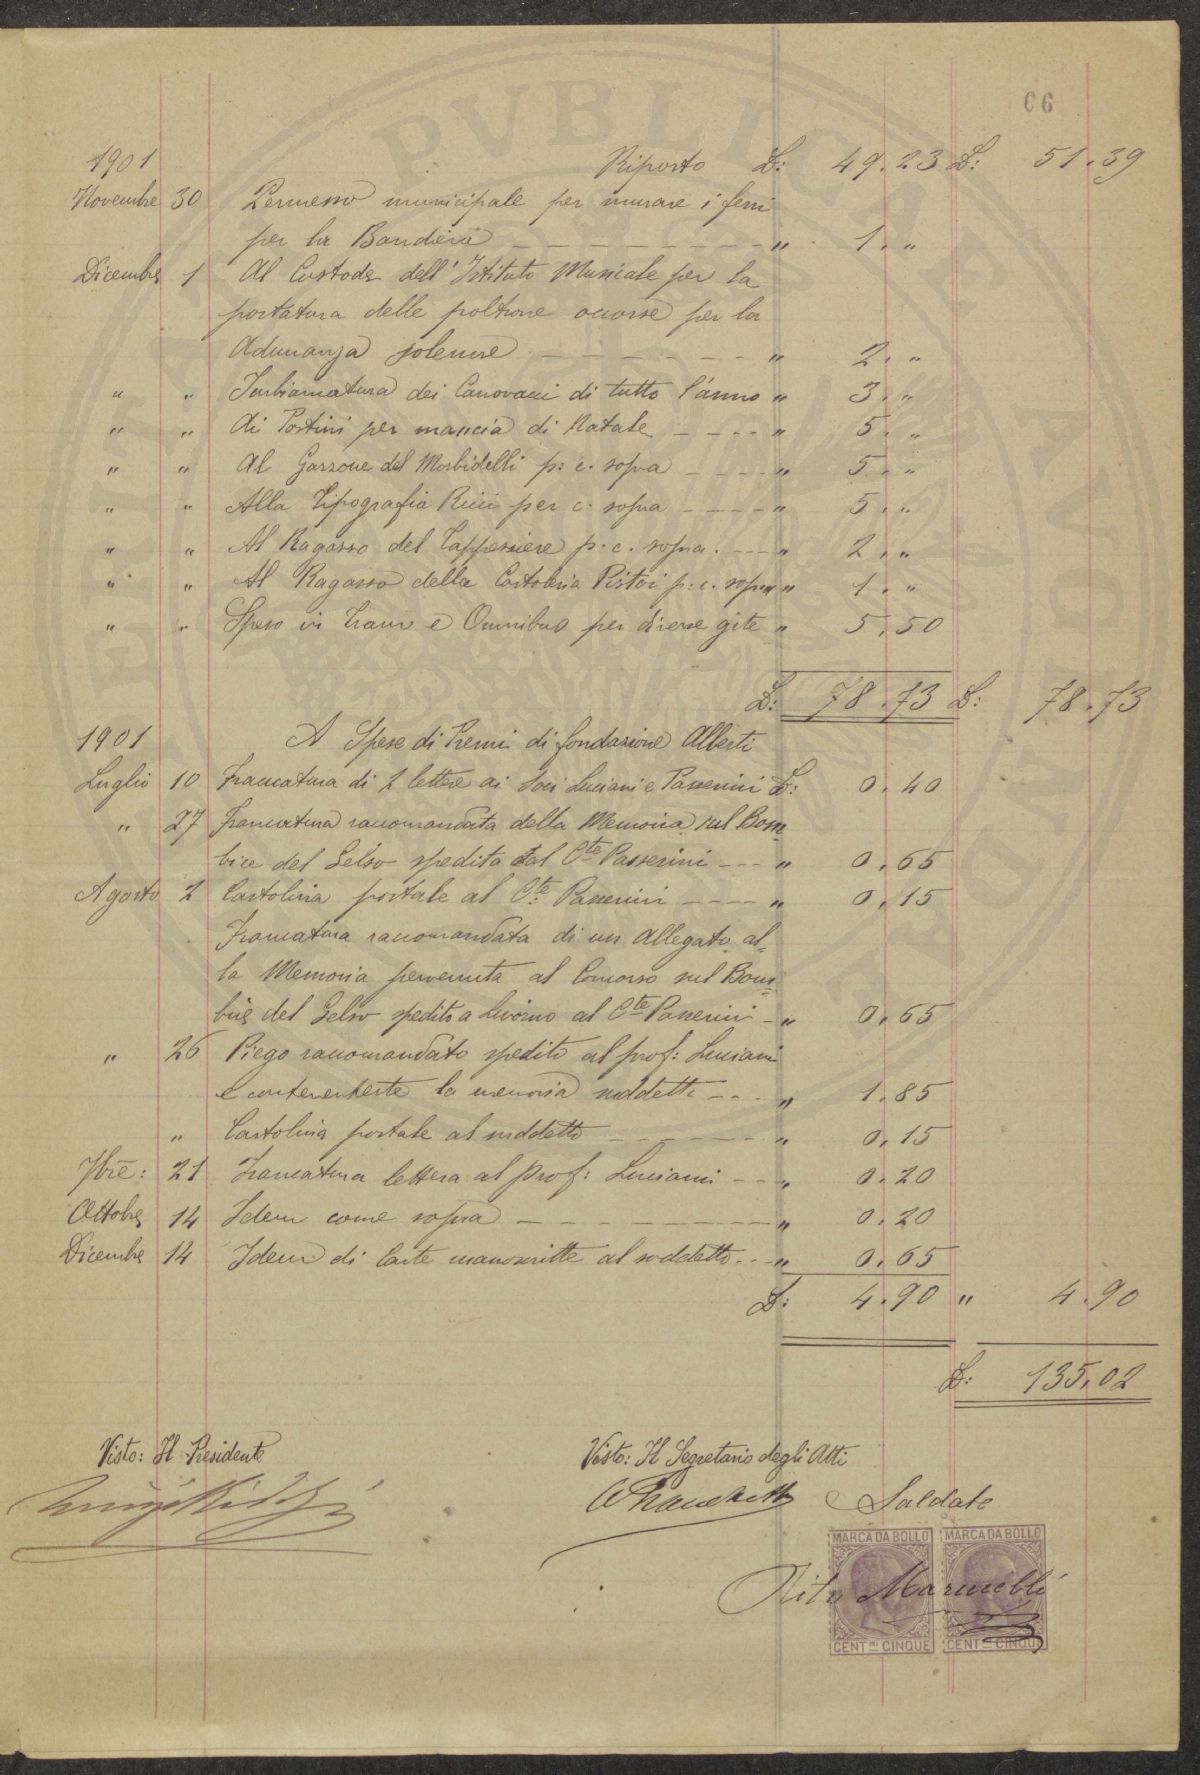 66
1901 Riporto L: 49.23 L: 51.39
Novembre 30 Permesso municipale per murare i ferri
per la Bandiera — — — " 1. "
Dicembre 1 Al Custode dell'Istituto Musicale per la
portatura delle poltrone occorse per la
Adunanza solenne — — — " 2. "
" " Imbiancatura dei Canovacci di tutto l'anno " 3. "
" " Ai Postini per mancia di Natale — — — " 5. "
" " Al Garzone del Morbidelli p: c. sopra — — — " 5. "
" " Alla Tipografia Ricci per c. sopra — — — " 5. "
" " Al Ragazzo del Tappezziere p. c. sopra. — — — " 2. "
" " Al Ragazzo della Cartoleria Pistoi p: c. sopra " 1. "
" " Speso in Tram e Omnibus per diverse gite " 5.50
L: 78.73 L: 78.73
1901 A Spese di Premi di fondazione Alberti
Luglio 10 Francatura di 2 lettere ai Soci Luciani e Passerini L: 0.40
" 27 Francatura raccomandata della Memoria sul Bom=
bice del Gelso spedita dal Cte Passerini — — — " 0.65
Agosto 2 Cartolina postale al Cte: Passerini — — — " 0.15
Francatura raccomandata di un Allegato al=
la Memoria pervenuta al Concorso sul Bom=
bice del Gelso spedito a Livorno al Cte Passerini — " 0.65
" 26 Piego raccomandato spedito al prof: Luciani
e contenente la memoria suddetta — — — " 1.85
" Cartolina postale al suddetto — — — " 0.15
7bre: 21 Francatura lettera al prof: Luciani — — " 0.20
Ottobre 14 Idem come sopra — — — " 0.20
Dicembre 14 Idem di Carte manoscritte al suddetto — — " 0.65
L: 4.90 " 4.90
L: 135.02
Visto: Il Presidente
Visto: Il Segretario degli Atti
Saldato
MARCA DA BOLLO MARCA DA BOLLO
Marinelli
CENT.MI CINQUE CENT.MI CINQUE